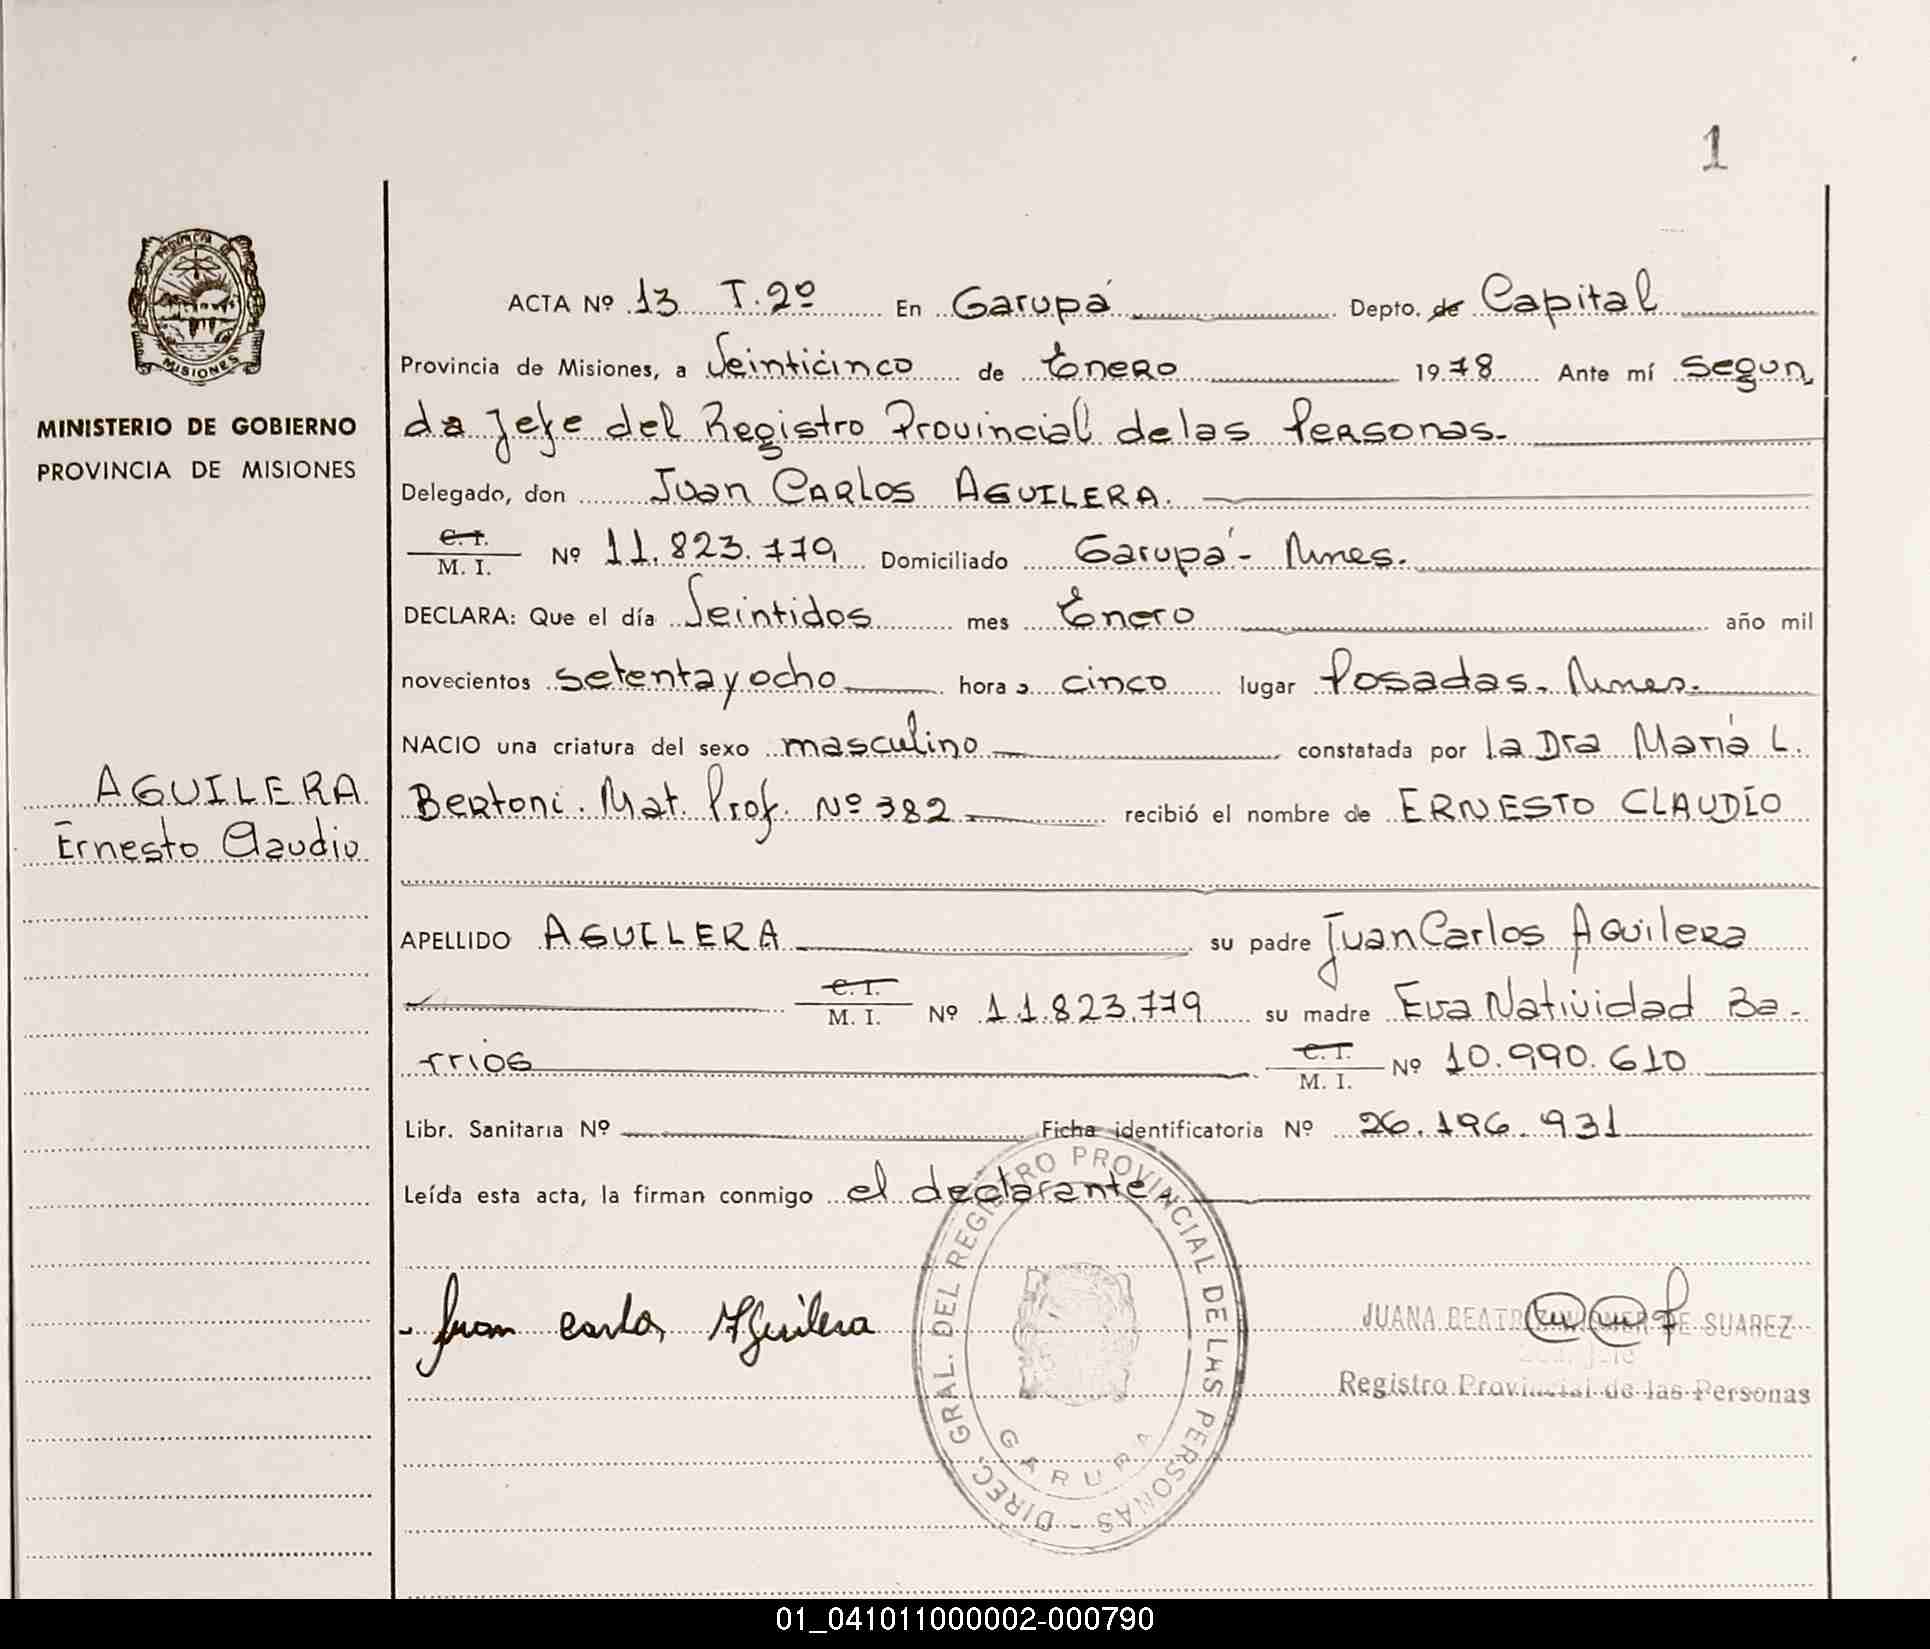 1
PROVINCIA DE
MISIONES
MINISTERIO DE GOBIERNO
PROVINCIA DE MISIONES
AGUILERA
Ernesto Claudio
ACTA Nº 13 T.2º En Garupá Depto. de Capital
Provincia de Misiones, a Veinticinco de Enero 1978 Ante mí Segun
da Jefe del Registro Provincial de las Personas.
Delegado, don Juan Carlos AGUILERA.
C. I.
M. I. Nº 11.823.779 Domiciliado Garupá - Mnes.
DECLARA: Que el día Veintidos mes Enero año mil
novecientos setenta y ocho hora s cinco lugar Posadas. Mnes.
NACIO una criatura del sexo masculino constatada por la Dra María L.
Bertoni. Mat. Prof. Nº 382 recibió el nombre de ERNESTO CLAUDIO
APELLIDO AGUILERA su padre Juan Carlos Aguilera
C. I.
M. I. Nº 11.823.779 su madre Eva Natividad Ba-
rrios C. I.
M. I. Nº 10.990.610
Libr. Sanitaria Nº Ficha identificatoria Nº 26.196.931
Leída esta acta, la firman conmigo el declarante.
Juan Carlos Aguilera
DIREC. GRAL. DEL REGISTRO PROVINCIAL DE LAS PERSONAS -
GARUPA
JUANA BEATR DE SUAREZ
Registro Provincial de las Personas
01_041011000002-000790